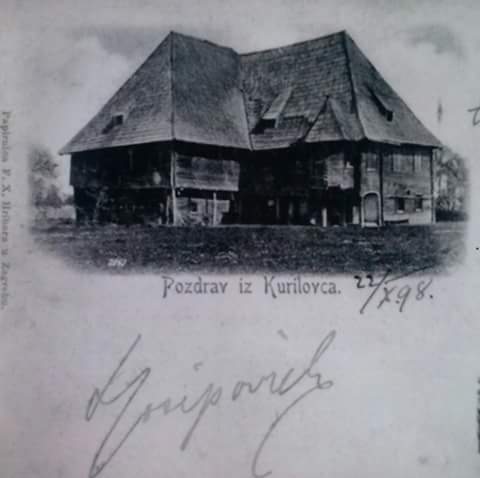 Papirnica F. X. Hribara u Zagrebu.
Pozdrav iz Kurilovca. 22/X.98.
Josipovich